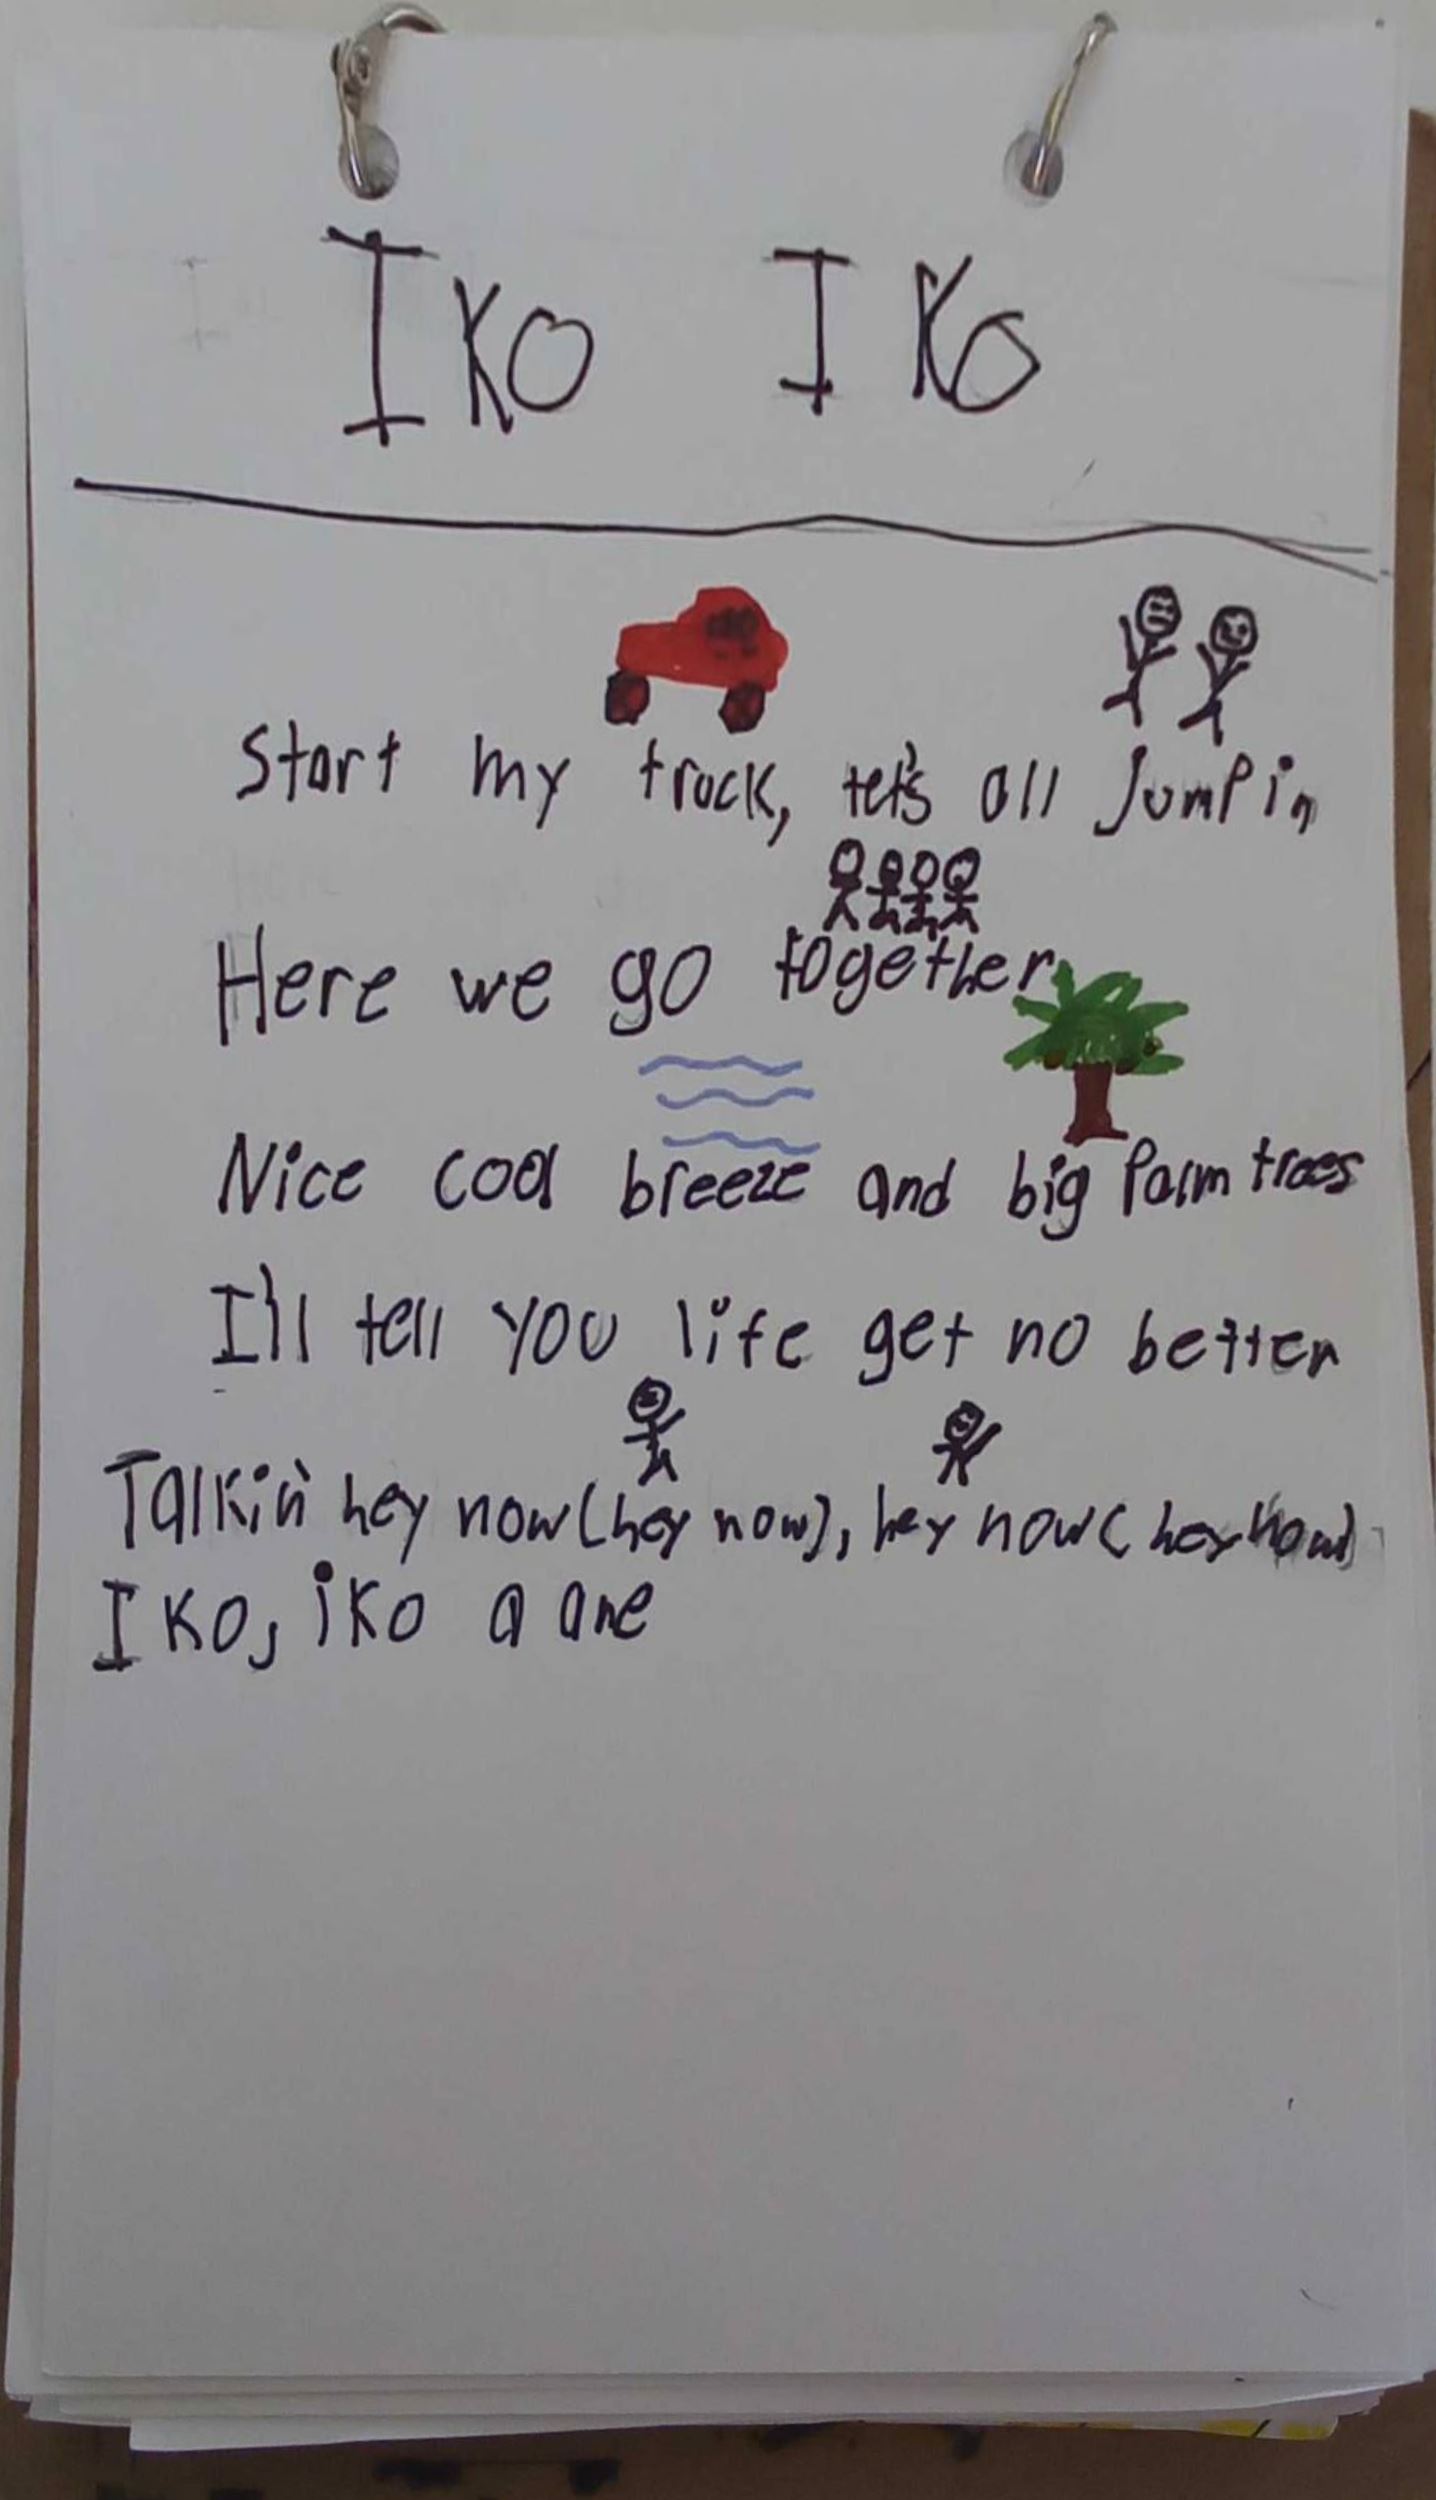 IKO IKO
Start my truck, let's all Jump in
Here we go together
Nice cool breeze and big Palm trees
I'll tell you life get no better
Talkin' hey now (hey now), hey now (hey now)
IKO, iko a ane